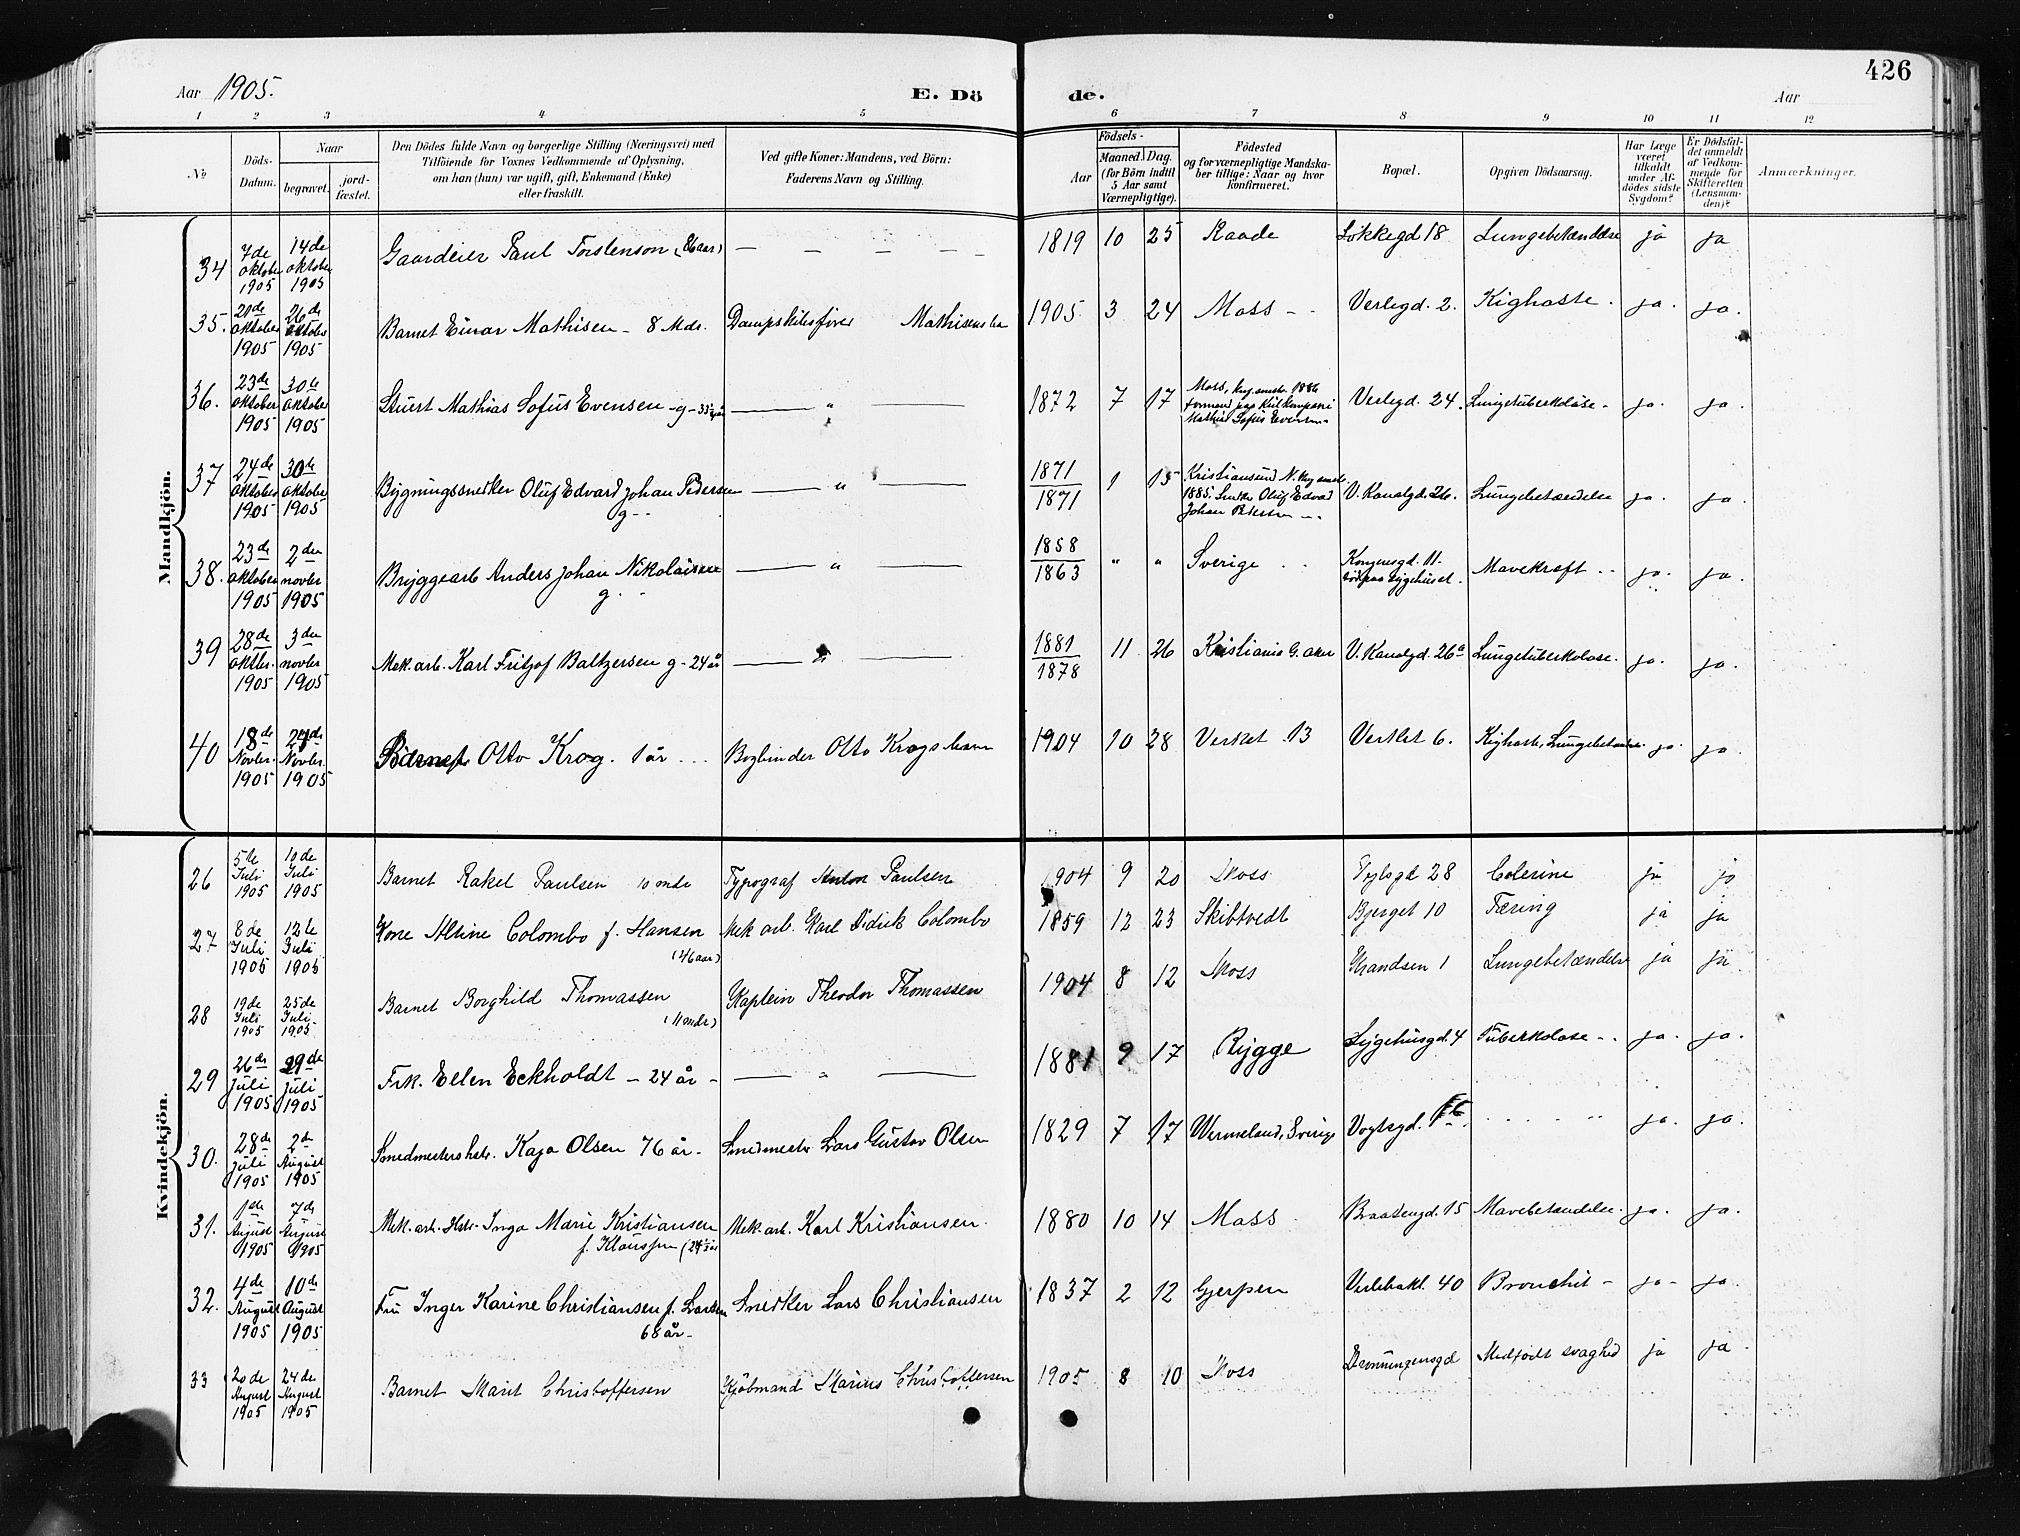 426
Aar 1905.
E. Dö de.
Aar
1 2 3 4 5 6 7 8 9 10 11 12
No
Döds-
Datum.
Naar
begravet.
jord-
fæstet.
Den Dödes fulde Navn og borgerlige Stilling (Næringsvei) med
Tilföiende for Voxnes Vedkommende af Oplysning,
om han (hun) var ugift, gift, Enkemand (Enke)
eller fraskilt.
Ved gifte Koner: Mandens, ved Börn:
Faderens Navn og Stilling.
Födsels-
Aar
Maaned. Dag.
(for Börn indtil
5 Aar samt
Værnepligtige).
Födested
og for værnepligtige Mandska-
ber tillige: Naar og hvor
konfirmeret.
Bopæl.
Opgiven Dödsaarsag.
Har Læge
været
tilkaldt
under Af-
dödes sidste
Sygdom?
Er Dödsfal-
det anmeldt
af Vedkom-
mende for
Skifteretten
(Lensman-
den)?
Anmærkninger.
Mandkjön.
34 7de oktober 1905 14de oktober 1905 Gaardeier Paul Torstenson (86 aar) — — — — 1819 10 25 Raade Løkkegd 18 Lungebetændelse ja ja
35. 21de oktober 1905 26de oktober 1905 Barnet Einar Mathisen - 8 Mdr. Dampskibsfører Mathisens 1905 3 24 Moss Verlegd. 2. Kighoste. ja. ja.
36. 23de oktober 1905 30te oktober 1905 Stuert Mathias Sofus Evensen - g - — " — 1872 7 17 Moss, 1886 Mathias Sofus Evensen Verlegd. 24. Lungetuberkolose. ja. ja.
37 24de oktober 1905 30de oktober 1905 Bygningssnedker Oluf Edvard Johan Pedersen g — " — 1871 1871 1 15 Kristiansund N. 1885. Oluf Edvard Johan V. Kanalgd. 26. Lungebetændelse ja. ja.
38. 23de oktober 1905 2den novber 1905 Bryggearb Anders Johan Nikolaisen g. — " — 1858 1863 " " Sverige Kongensgd. 11. sygehuset. Mavekræft ja. ja.
39 28de oktbr. 1905 3den novber 1905 Mek. arb. Karl Fritjof Baltzersen g - 24 år — " — 1881 1878 11 26 Kristiania G. aker V. Kanalgd. 26a Lungetuberkolose. ja. ja.
40 18de Novbr. 1905 24de Novbr. 1905 Barnet Otto Krog. 1 år Bogbinder Otto Krogs barn 1904 10 28 Verket 13 Verket 6. Kighoste, Lungebetændelse ja. ja.
Kvindekjön.
26 5te Juli 1905 10de Juli 1905 Barnet Rakel Paulsen 10 mdr Typograf Anton Paulsen 1904 9 20 Moss 28 Colerine ja ja
27 8de Juli 1905 12te Juli 1905 Kone Alvine Colombo f. Hansen (46 aar) Mek arb. Karl Didrik Colombo 1859 12 23 Skibtvedt Bjerget 10 Tæring ja ja
28 19de Juli 1905 25de Juli 1905 Barnet Borghild Thomassen (11 mdr) Kaptein Theodor Thomassen 1904 8 12 Moss 1 Lungebetændelse ja ja
29 26de Juli 1905 29de Juli 1905 Frk. Ellen Eckholdt - 24 år - — " — 1881 9 17 Rygge Sygehusgd. 4 Tuberkolose ja. ja.
30. 28de Juli 1905 2de August 1905 Smedmesters hstr. Kaja Olsen 76 år. Smedmester Lars Gustav Olsen 1829 7 17 Wermeland, Sverige Vogtsgd. ja. ja.
31. 1ste August 1905 7de August 1905 Mek. arb. Hstr. Inga Marie Kristiansen f. Klaussen (24 1/2 år Mek. arb. Karl Kristiansen. 1880 10 14 Moss Braatengd. 15 Mavebetændelse. ja. ja.
32. 4de August 1905 10de August 1905 Fru Inger Karine Christiansen f. Larsen 68 år - Snedker Lars Christiansen 1837 2 12 Gjerpen Verlebakk. 40 Bronchit - ja - ja.
33 20de August 1905 24de August 1905 Barnet Marit Christoffersen Kjöbmand Marius Christoffersen 1905 8 10 Moss Dronningensgd Medfødt svaghed ja ja